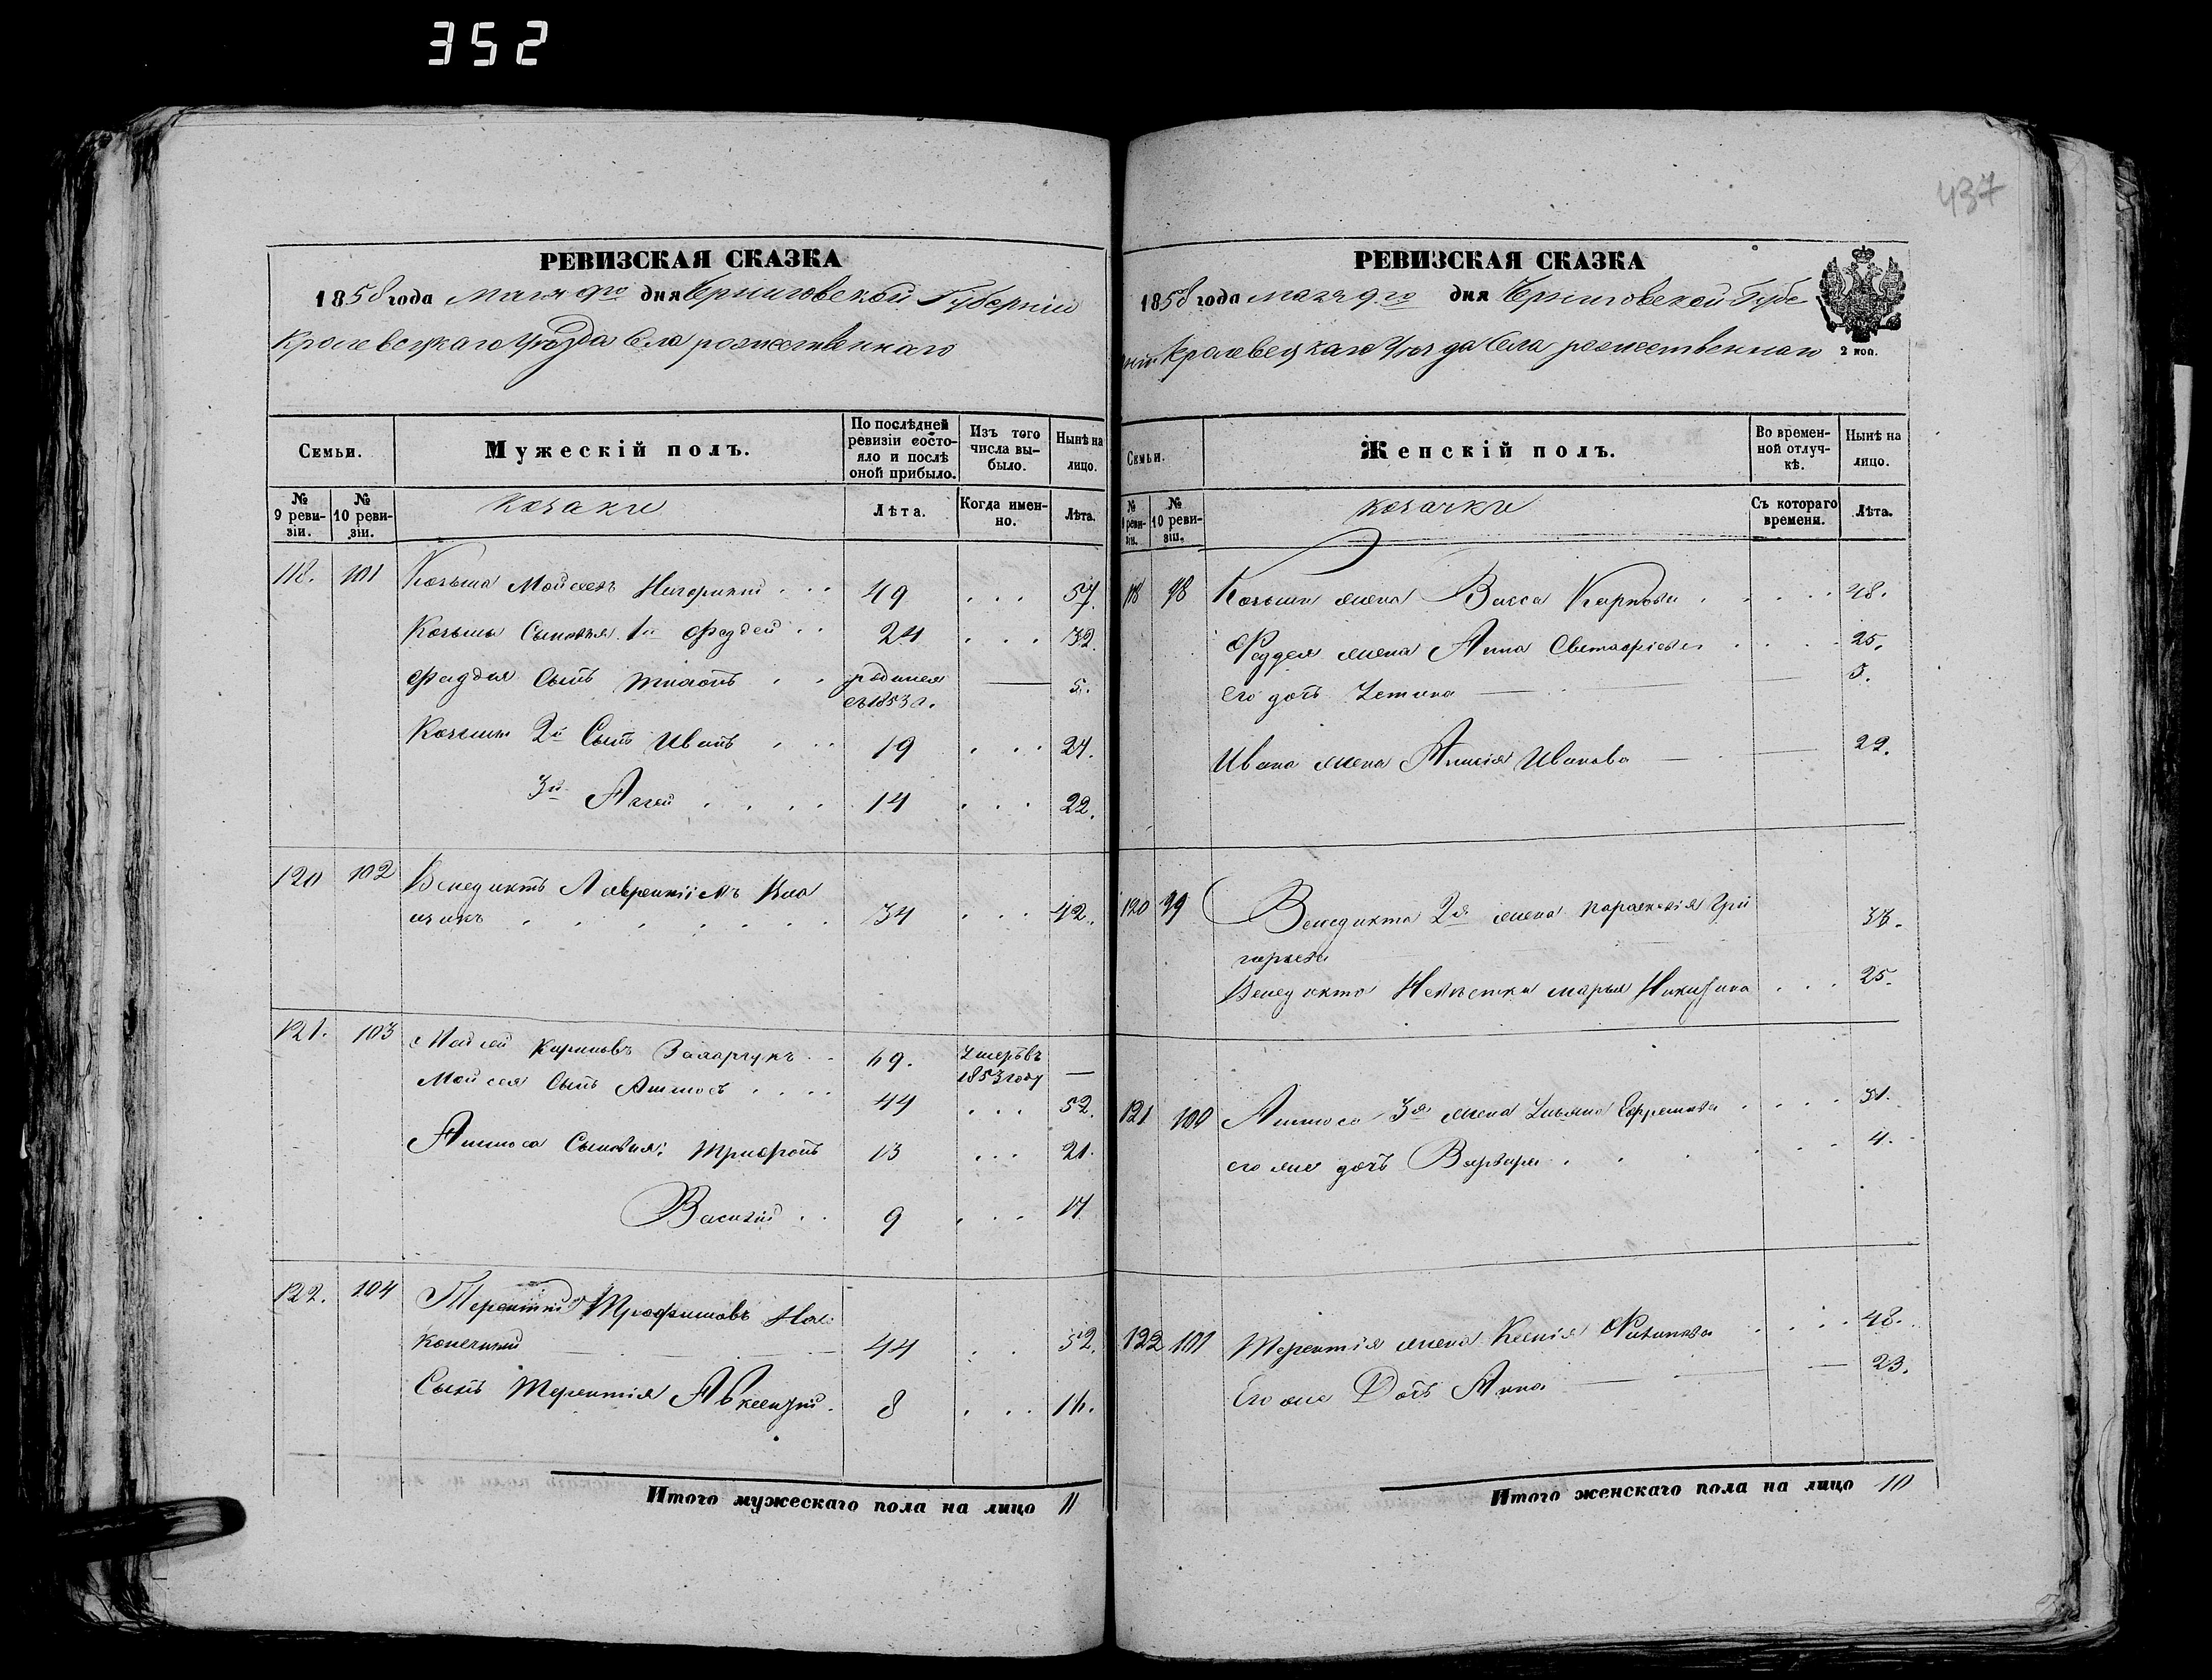 352
437
РЕВИЗСКАЯ СКАЗКА
1858 года мая 9го дня Черниговской Губерніи
Кролевецкаго Уѣзда Села рожественнаго
Семьи.
Мужескій полъ.
По послѣдней ревизіи состояло и послѣ оной прибыло.
Изъ того числа выбыло.
Нынѣ на лицо.
№ 9 ревизіи.
№ 10 ревизіи.
козаки
Лѣта.
Когда именно.
Лѣта.
118. 101 Козьма Мойсеевъ . . . 49 . . . 57.
Козьмы Сыновья 1й Фаддей . . 24 . . . 32.
Фаддея Сынъ . . родился въ 1853 г. — 5.
Козьмы 2й Сынъ Иванъ . . . 19 . . . 27.
3й Аггей . . . . 14 . . . 22.
120 102 Венедиктъ
34 . . . 42.
121. 103 Мойсей . . 69. Умеръ въ 1853 году —
Мойсея Сынъ Аммосъ . . . . 44 . . . 52.
Аммоса Сыновья: Трифонъ 13 . . . 21.
Василій . . 9 . . . 17.
122. 104 Терентій Трофимовъ На
конечный — 44 . . 52.
Сынъ Терентія Авксентій. 8 . . . 16.
Итого мужескаго пола на лицо 11
РЕВИЗСКАЯ СКАЗКА
1858 года мая 9го дня Черниговской Губе
ніи Кролевецкаго Уѣзда Села рожественнаго
2 коп.
Семьи.
Женскій полъ.
Во временной отлучкѣ.
Нынѣ на лицо.
№ 9 ревизіи.
№ 10 ревизіи.
козачки
Съ котораго времени.
Лѣта.
118 98 Козьмы жена Васса Карпова . . . . . 48.
Фаддея жена Анна . . . . 25.
Его дочь — — 3.
Ивана жена Анисія Иванова — — 22.
120 99 Венедикта 2я жена Параскевія Гри
горьева
Венедикта Невѣстка марья Никитина . . . 25.
121 100 Аммоса 3я жена Ульяна Ефремова . . . . 31.
его же дочь Варвара . . . . . 4.
122 101 Терентія жена Ксенія . . . . 48.
Его же Дочь Анна — — 23.
Итого женскаго пола на лицо 10